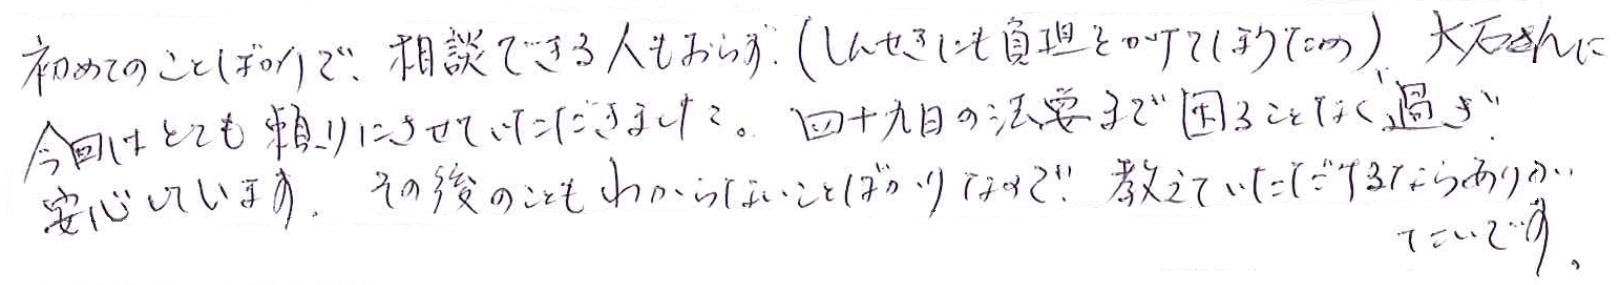 初めてのことばかりで、相談できる人もおらず、(しんせきにも負担をかけてしまうため) 大石さんに
今回はとても頼りにさせていただきました。四十九日の法要まで困ることなく過ぎ、
安心しています。その後のこともわからないことばかりなので、教えていただけるならありがい
たいです。